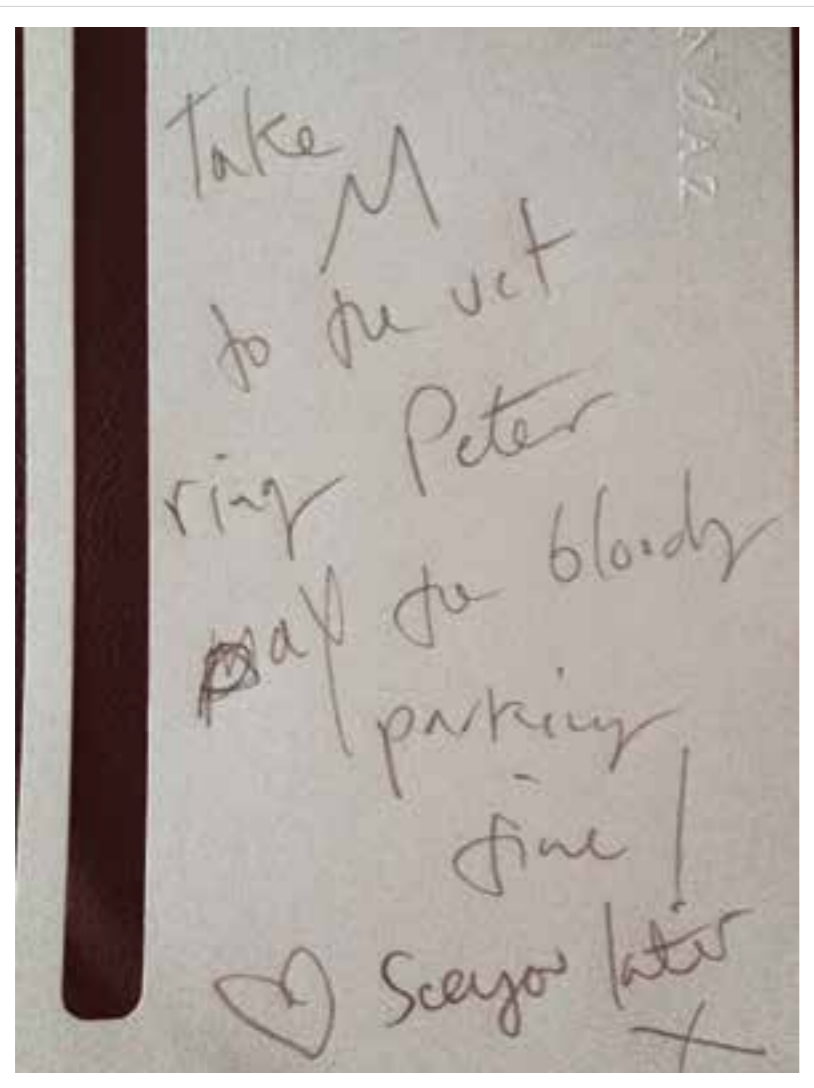 Take M
to the vet
ring Peter
pay the bloody
parking
fine!
♡ See you later
x